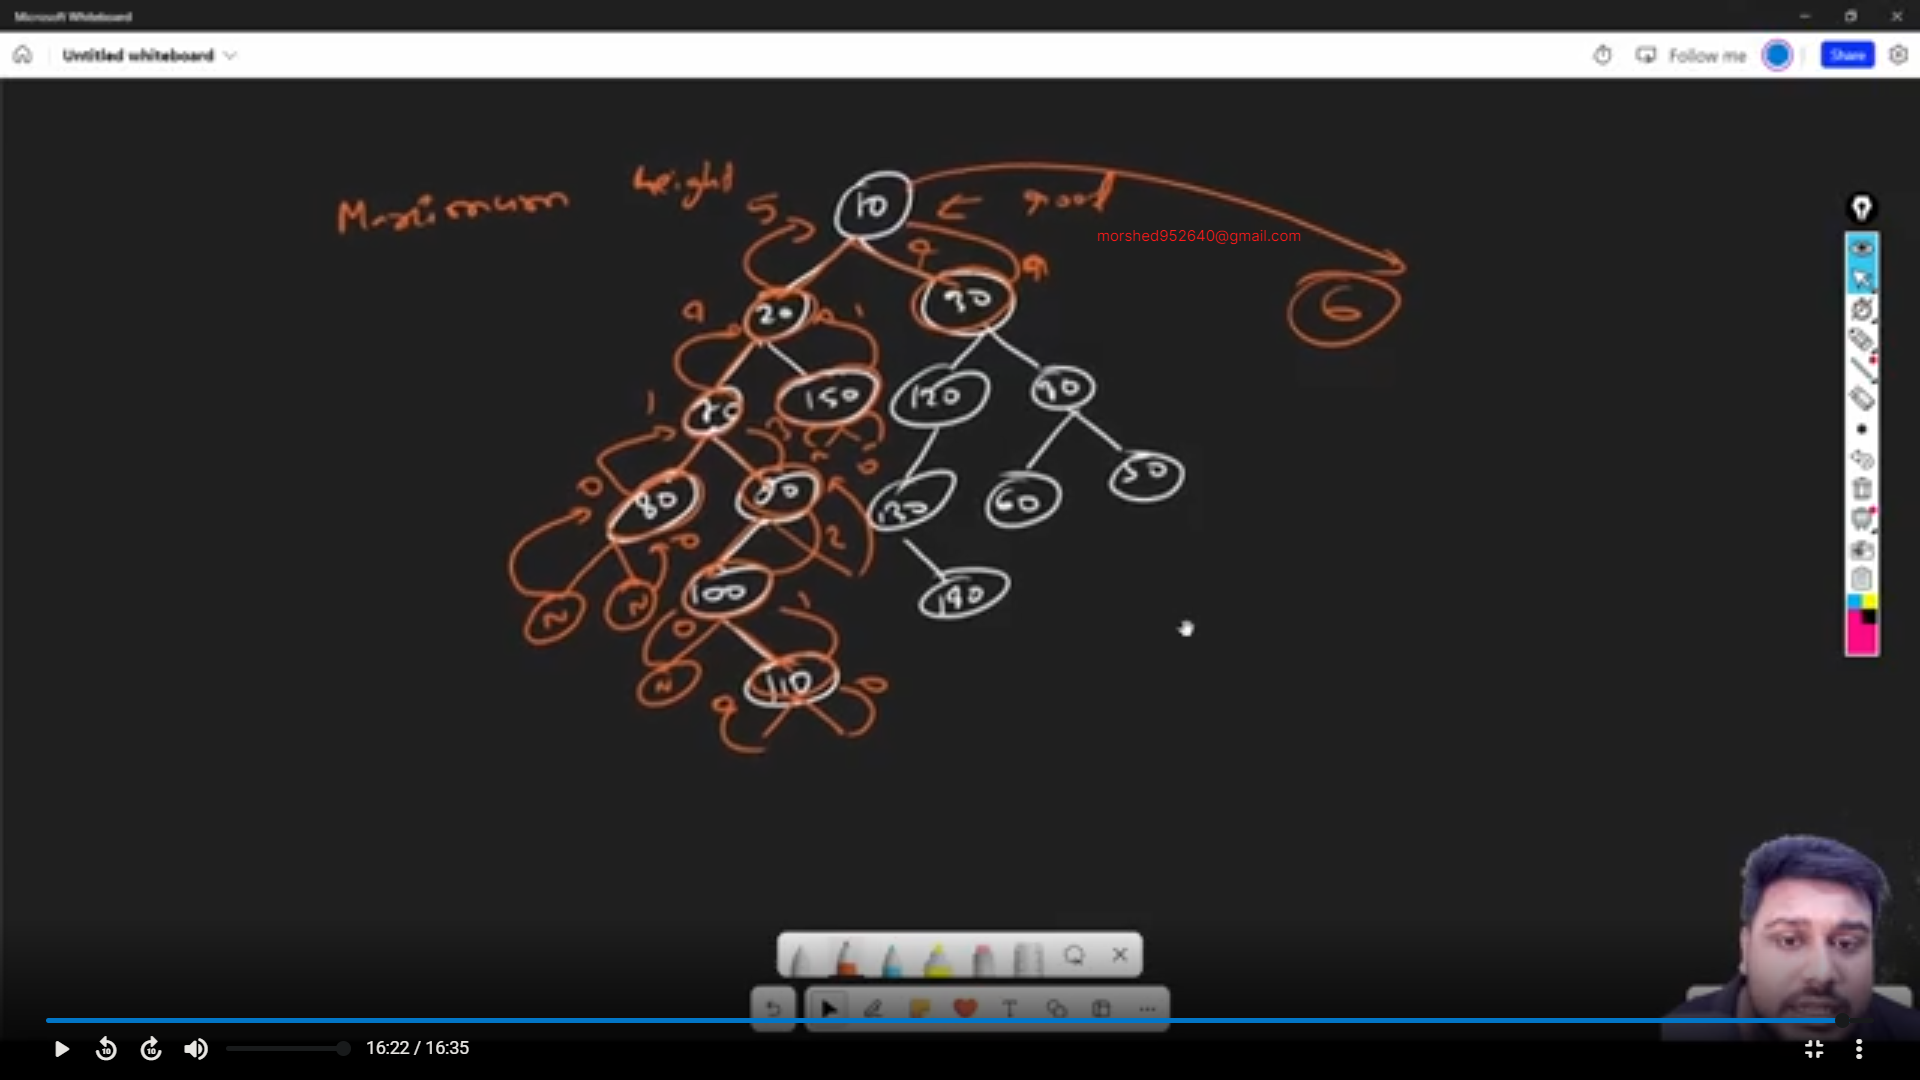 Microsoft Whiteboard
Untitled whiteboard
Follow me
Share
Maximum height
10
5
morshed952640@gmail.com
9
6
20
4
1
150
120
90
1
80
60
50
130
2
0
0
100
N
N
140
0
1
N
110
0
0
16:22 / 16:35